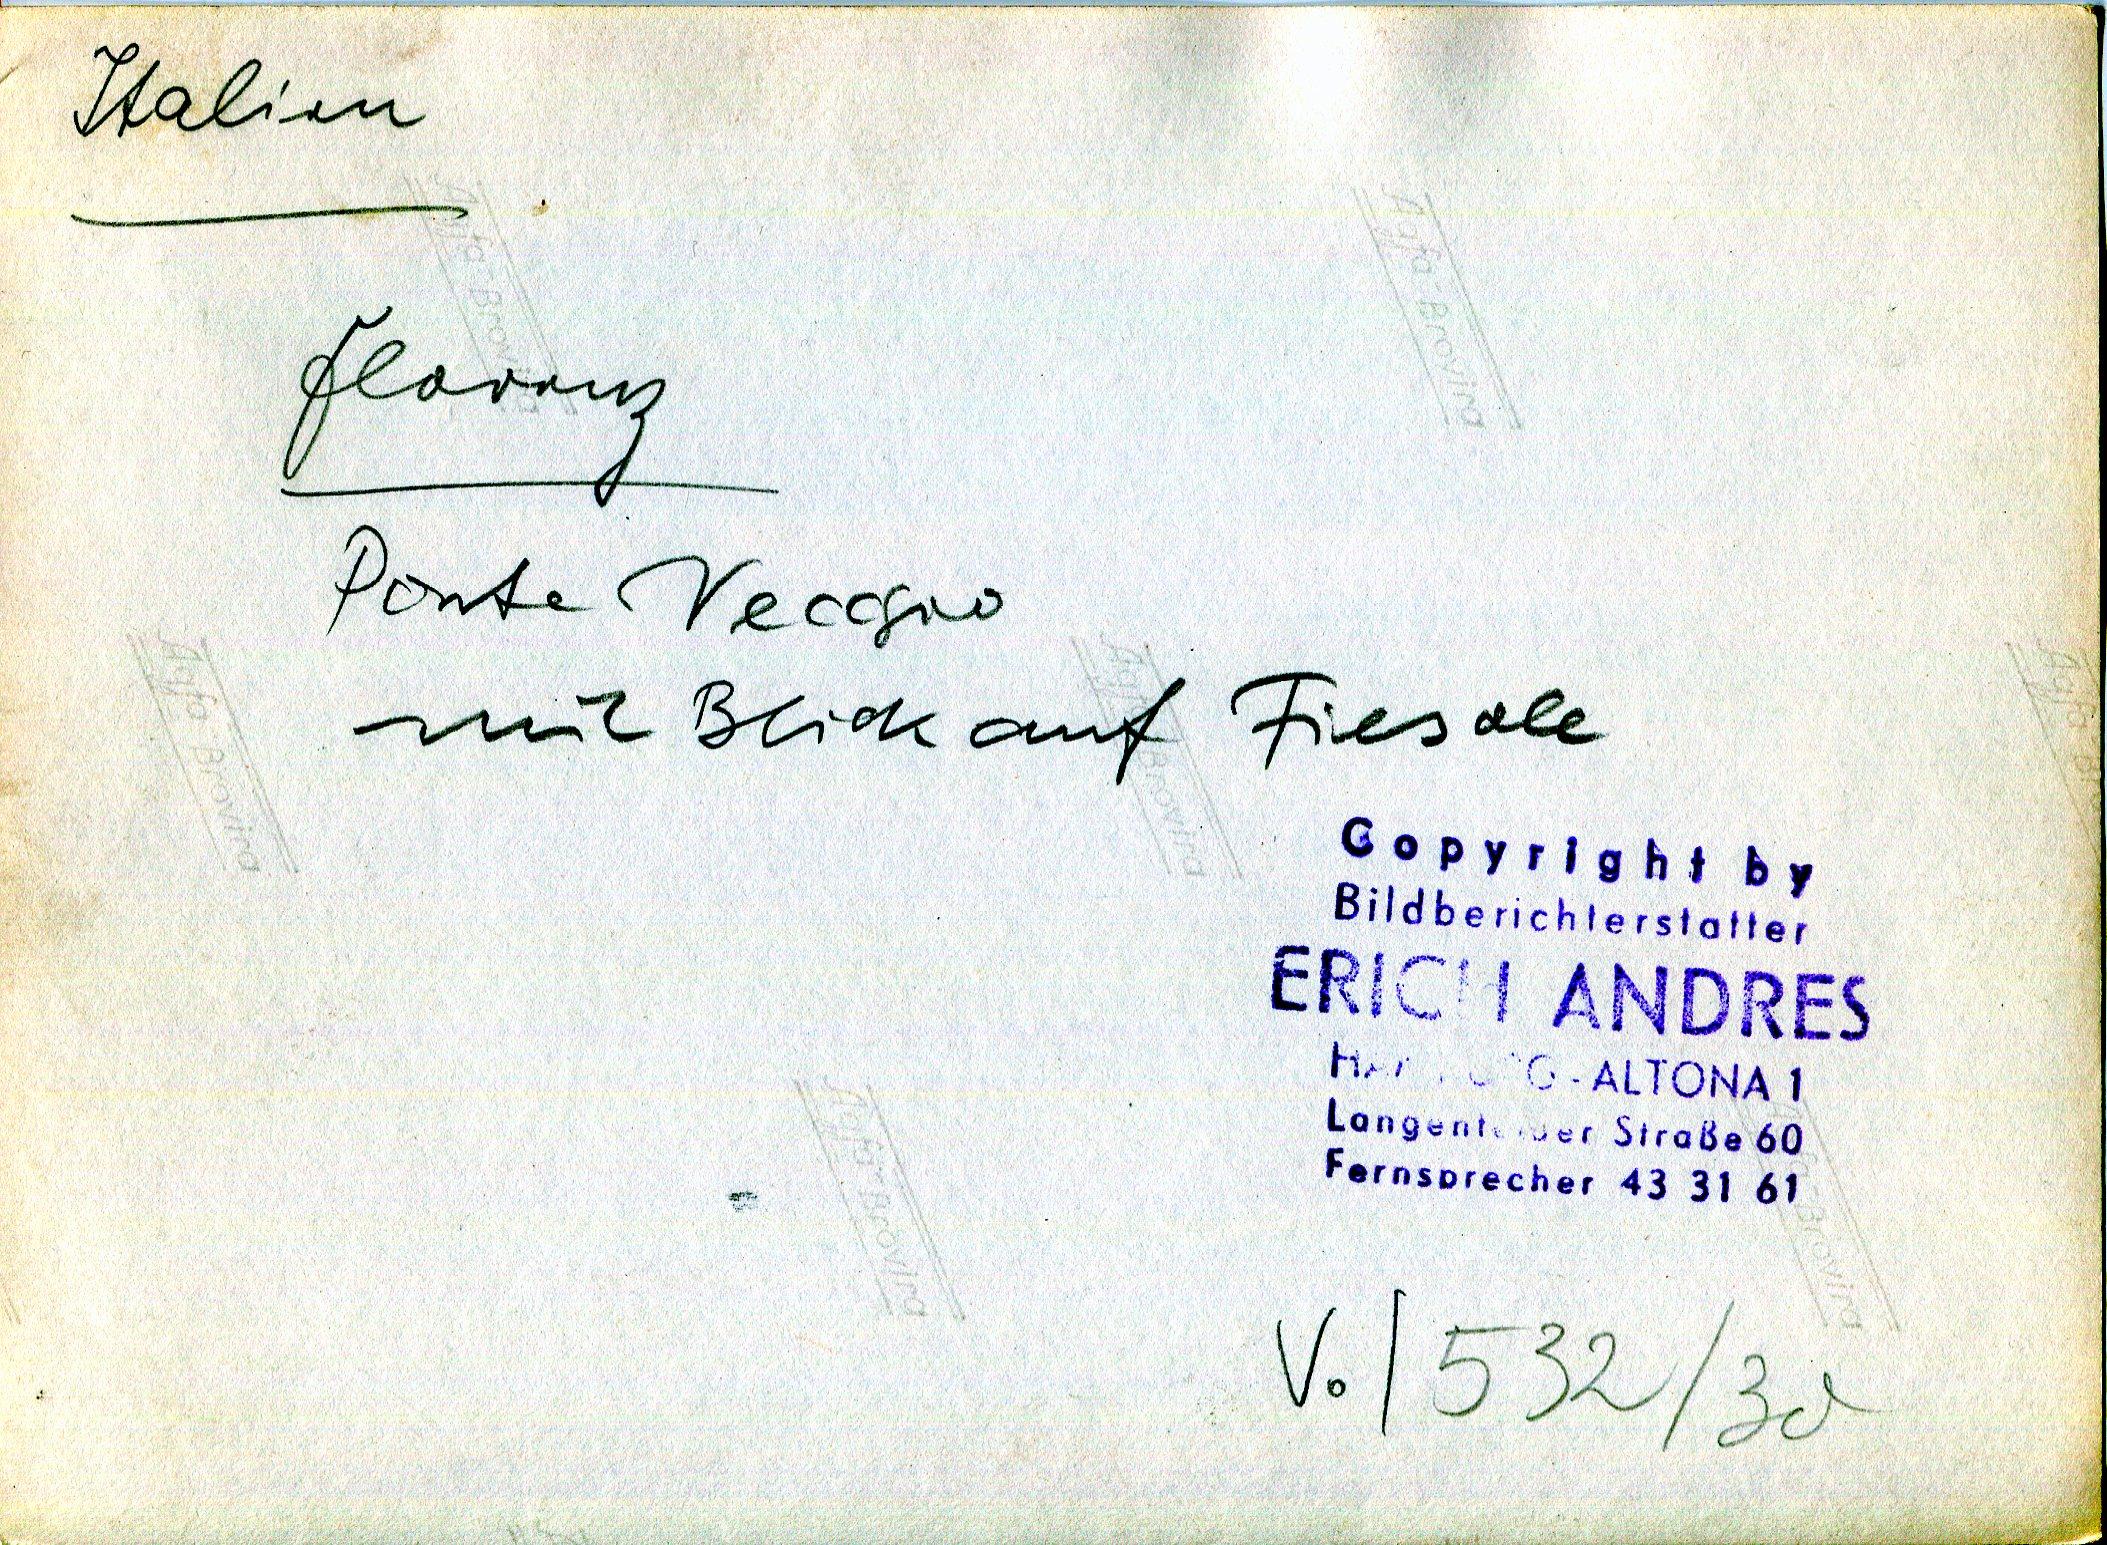 Italien
Florenz
Ponte Veccgio
mit Blick auf Fiesole
Copyright by
Bildberichterstatter
ERICH ANDRES
HAMBURG-ALTONA 1
Langenfelder Straße 60
Fernsprecher 43 31 61
V. / 532/30
Agfa-Brovira
Agfa-Brovira
Agfa-Brovira
Agfa-Brovira
Agfa-Brovira
Agfa-Brovira